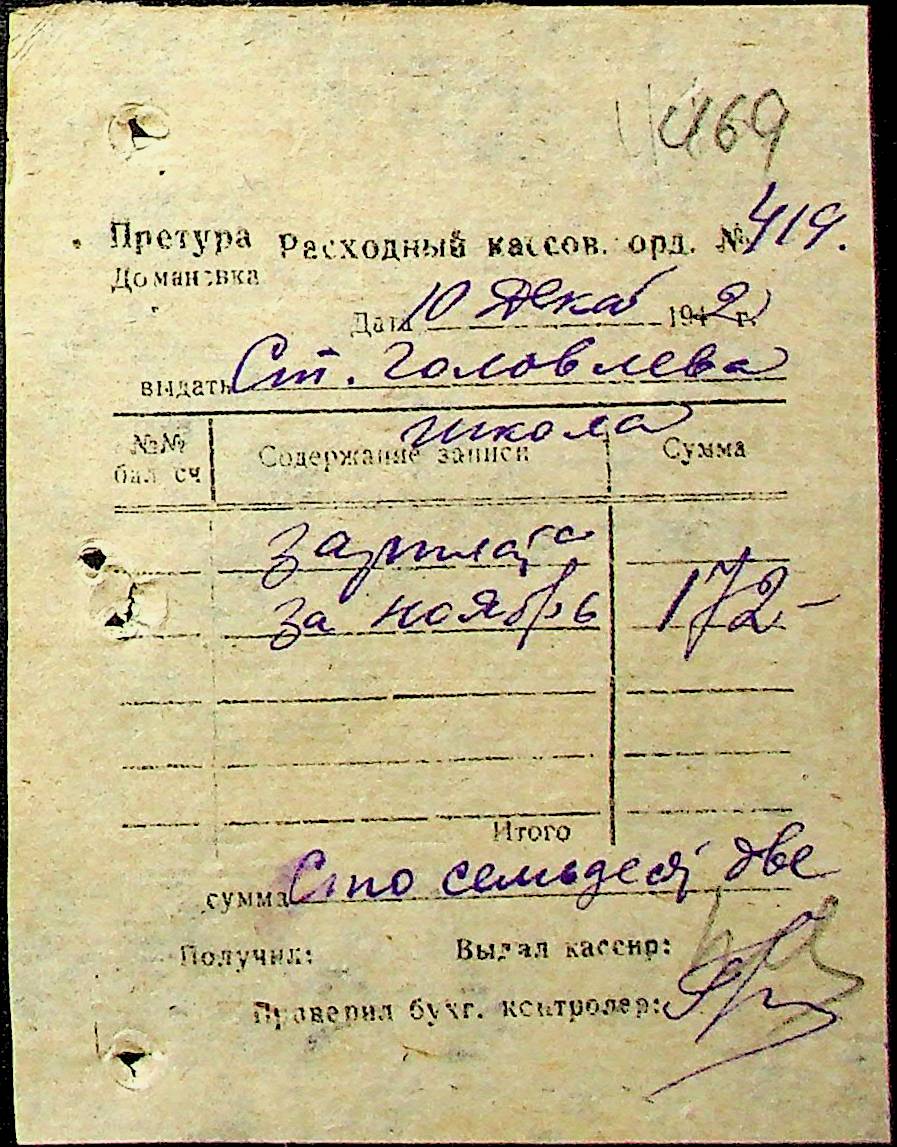 469
Претура Расходный кассов. орд. № 419.
Домановка
Дата 10 Декаб 1942 г.
выдать Ст. Головлева
школа
№№ бал сч Содержание записи Сумма
зарплата
за ноябрь 172-
Итого
сумма Сто семьдесят две
Получил: Выдал кассир:
Проверил бухг. контролер: